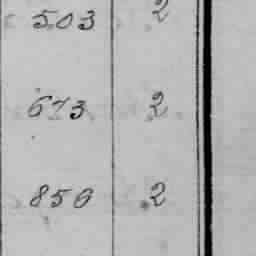 503 2
673 2
856 2